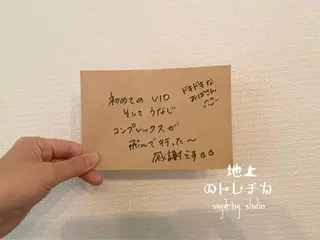 初めての VIO
そして うなじ
コンプレックスが
飛んで行った〜
感謝です
ドキドキな
おばさん
地上
のトレチカ
sugaring studio